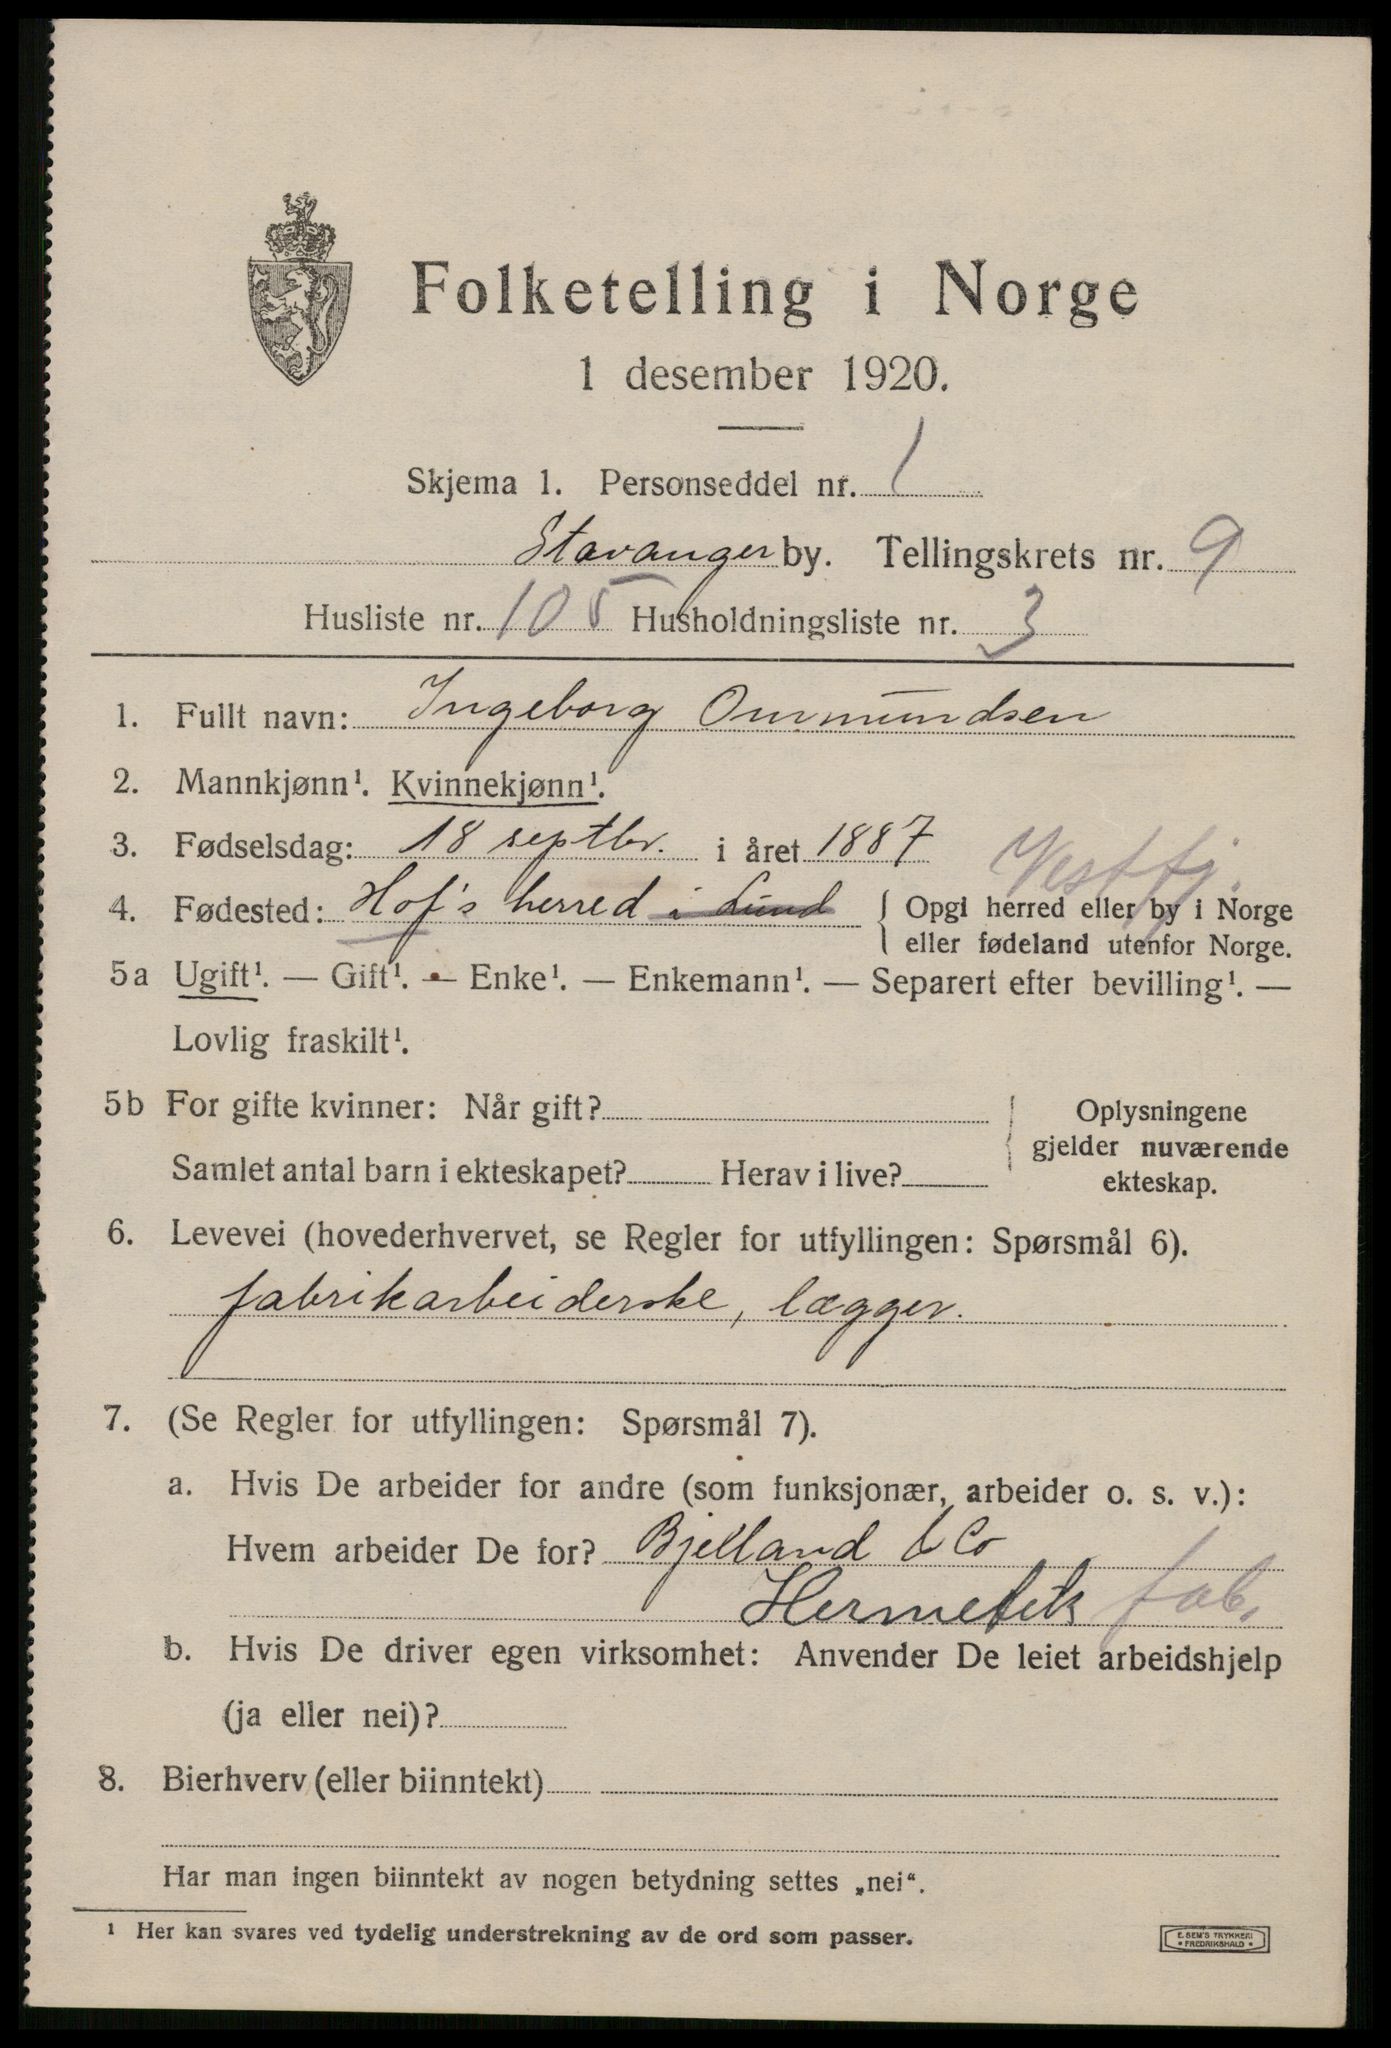 Folketelling i Norge
1 desember 1920.
Skjema 1. Personseddel nr. 1
Stavanger by. Tellingskrets nr. 9
Husliste nr. 105 Husholdningsliste nr. 3
1. Fullt navn: Ingeborg Ommundsen
2. Mannkjønn¹. Kvinnekjønn¹.
3. Fødselsdag: 18 septbr. i året 1887
Vestfj.
4. Fødested: Hof's herred i Lund { Opgi herred eller by i Norge
eller fødeland utenfor Norge.
5a Ugift¹. — Gift¹. — Enke¹. — Enkemann¹. — Separert efter bevilling¹. —
Lovlig fraskilt¹.
5b For gifte kvinner: Når gift?
Samlet antal barn i ekteskapet? Herav i live?
Oplysningene
gjelder nuværende
ekteskap.
6. Levevei (hovederhvervet, se Regler for utfyllingen: Spørsmål 6).
fabrikarbeiderske, lægger.
7. (Se Regler for utfyllingen: Spørsmål 7).
a. Hvis De arbeider for andre (som funksjonær, arbeider o. s. v.):
Hvem arbeider De for? Bjelland & Co
Hermetik fab.
b. Hvis De driver egen virksomhet: Anvender De leiet arbeidshjelp
(ja eller nei)?
8. Bierhverv (eller biinntekt)
Har man ingen biinntekt av nogen betydning settes „nei“.
¹ Her kan svares ved tydelig understrekning av de ord som passer.
E. SEM'S TRYKKERI
• FREDRIKSHALD •